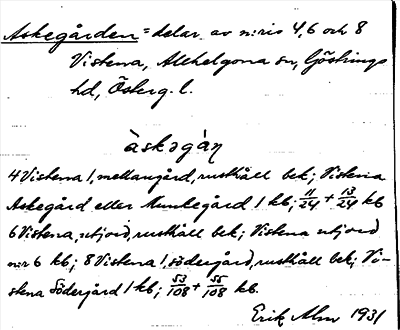 Askegården = delar av n:ris 4, 6 och 8
Vistena, Allhelgona sn, Göstrings
hd, Österg. l.
àskəgàn
4 Vistena 1, mellangård, rusthåll bek; Vistena
Askegård eller Munkegård 1 kb; 11/24 + 13/24 kb
6 Vistena, utjord, rusthåll bek; Vistena utjord
n:r 6 kb; 8 Vistena 1, södergård, rusthåll bek; Vi-
stena Södergård 1 kb; 53/108 + 55/108 kb.
Erik Alm 1931